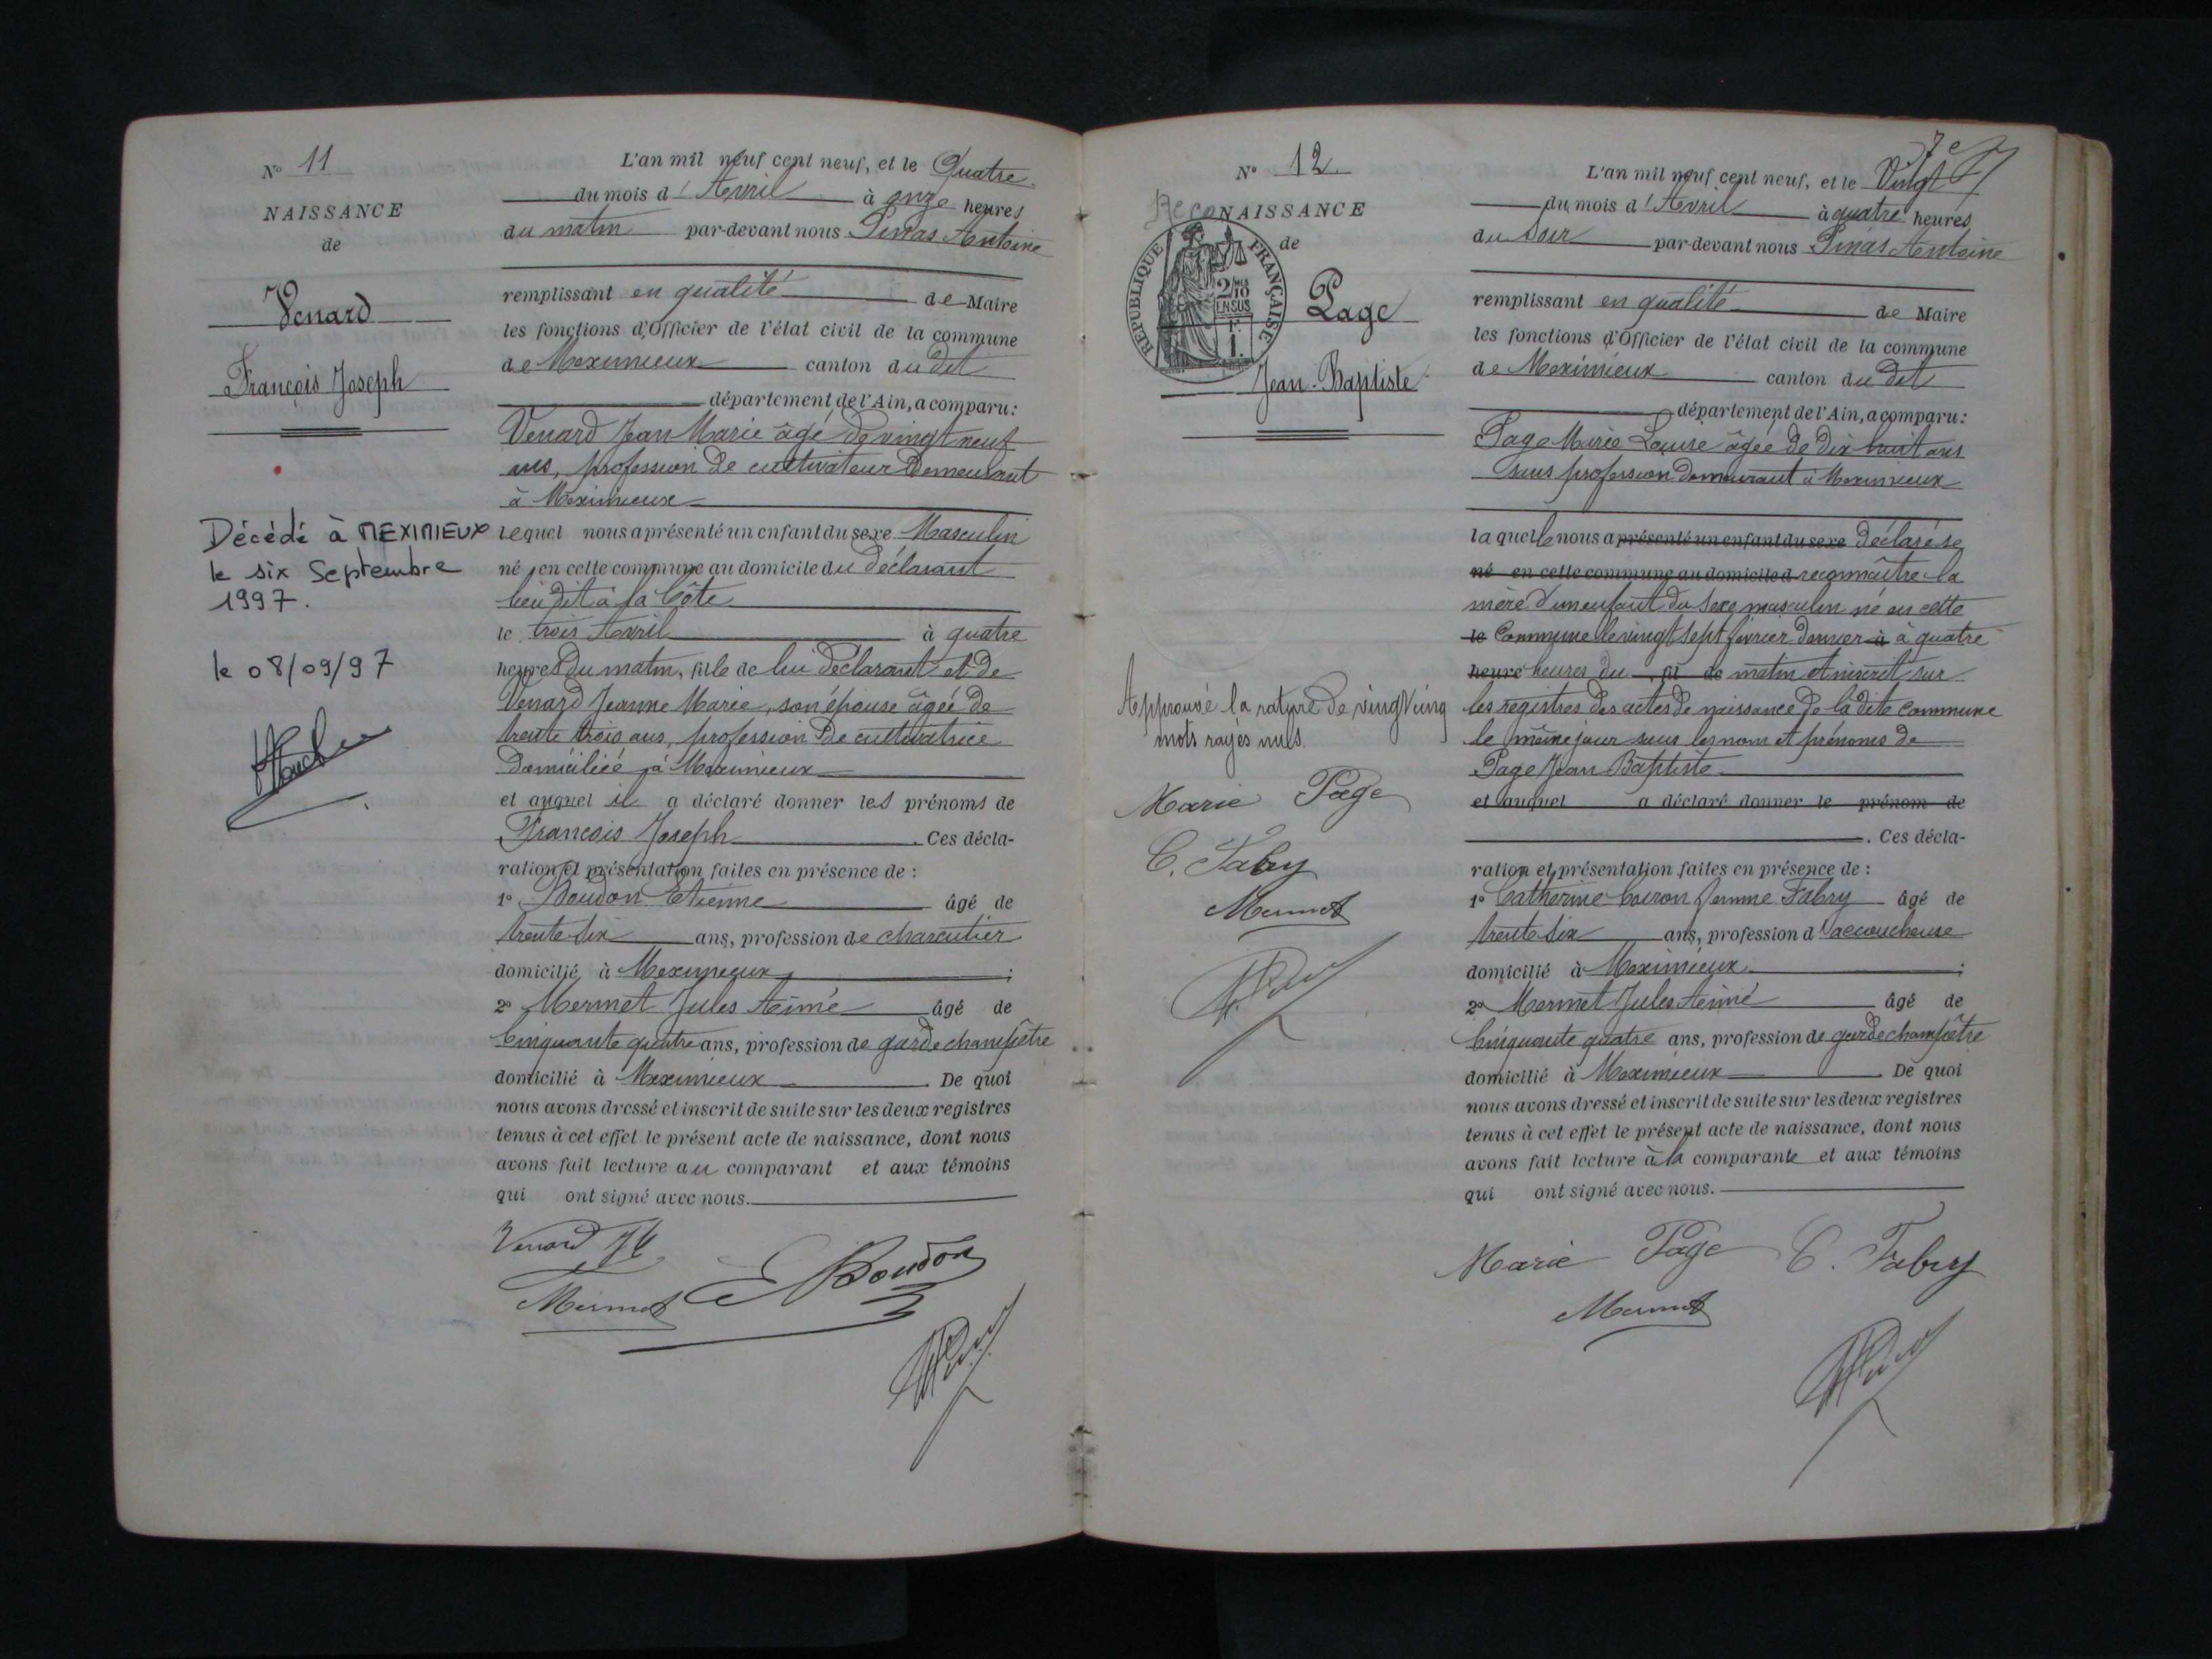 N° 11
NAISSANCE
de
Venard
François Joseph
Décédé à MEXIMIEUX
le six Septembre
1997.
le 08/09/97
L'an mil neuf cent neuf, et le Quatre
du mois d'Avril à onze heures
du matin par-devant nous Pinas Antoine
remplissant en qualité de Maire
les fonctions d'Officier de l'état civil de la commune
de Meximieux canton du dit
département de l'Ain, a comparu:
Venard Jean Marie âgé de vingt neuf
ans, profession de cultivateur demeurant
à Meximieux
lequel nous a présenté un enfant du sexe Masculin
né en cette commune au domicile du déclarant
lieu dit à la Côte
le trois Avril à quatre
heures du matin, fils de lui déclarant et de
Venard Jeanne Marie, son épouse âgée de
trente trois ans, profession de cultivatrice
domiciliée à Meximieux
et auquel il a déclaré donner les prénoms de
François Joseph. Ces décla-
ration et présentation faites en présence de :
1° Boudon Etienne âgé de
trente six ans, profession de charcutier
domicilié à Meximieux ;
2° Mermet Jules Aimé âgé de
Cinquante quatre ans, profession de garde champêtre
domicilié à Meximieux. De quoi
nous avons dressé et inscrit de suite sur les deux registres
tenus à cet effet le présent acte de naissance, dont nous
avons fait lecture au comparant et aux témoins
qui ont signé avec nous.
Venard JM
Mermet E Boudon
7e
N° 12
Reco NAISSANCE
de
REPUBLIQUE FRANÇAISE
2/10
EN SUS
1F.
Page
Jean-Baptiste
Approuvé la rature de vingt cinq
mots rayés nuls.
Marie Page
C. Fabry
Mermet
L'an mil neuf cent neuf, et le Vingt
du mois d'Avril à quatre heures
du Soir par-devant nous Pinas Antoine
remplissant en qualité de Maire
les fonctions d'Officier de l'état civil de la commune
de Meximieux canton du dit
département de l'Ain, a comparu:
Page Marie Louise âgée de dix huit ans
sans profession demeurant à Meximieux
laquelle nous a présenté un enfant du sexe déclaré se
né en cette commune au domicile d reconnaître la
mère d'un enfant du sexe masculin né en cette
le Commune le vingt sept février dernier à à quatre
heure heures du fil de matin et inscrit sur
les registres des actes de naissance de la dite commune
le même jour sous les nom et prénoms de
Page Jean Baptiste
et auquel a déclaré donner le prénom de
. Ces décla-
ration et présentation faites en présence de :
1° Catherine Coiron femme Fabry âgé de
trente six ans, profession d'accoucheuse
domicilié à Meximieux ;
2° Mermet Jules Aimé âgé de
Cinquante quatre ans, profession de garde champêtre
domicilié à Meximieux. De quoi
nous avons dressé et inscrit de suite sur les deux registres
tenus à cet effet le présent acte de naissance, dont nous
avons fait lecture à la comparante et aux témoins
qui ont signé avec nous.
Marie Page C. Fabry
Mermet